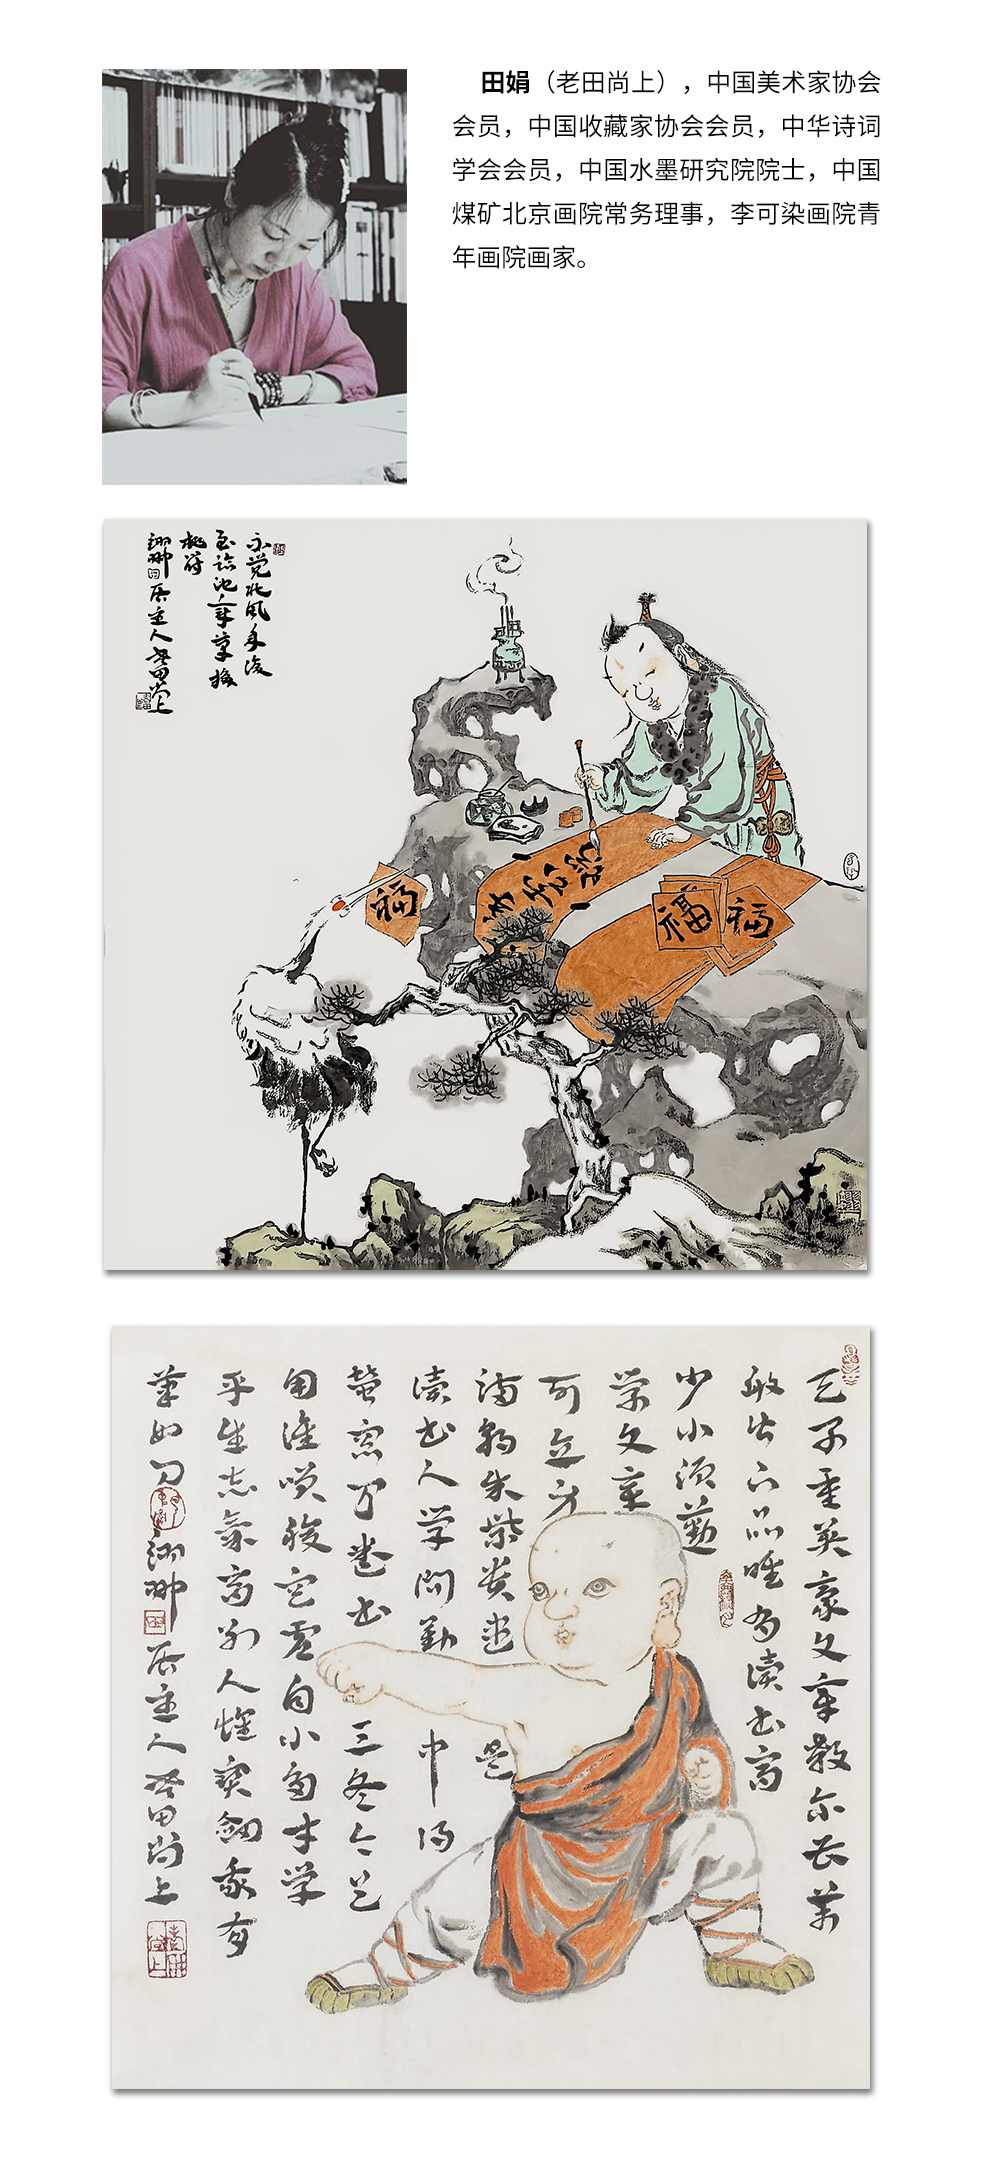 田娟（老田尚上），中国美术家协会
会员，中国收藏家协会会员，中华诗词
学会会员，中国水墨研究院院士，中国
煤矿北京画院常务理事，李可染画院青
年画院画家。
不觉北风年
至临池
桃符
居主人老田尚上
福
福
福
天子重英豪文章教尔曹万
般皆下品唯有读书高
少小须勤
学文章
可立身
满朝朱紫贵尽是
读书人学问勤中得
萤窗万卷书三冬今足
用谁笑腹空虚自小多才学
平生志气高别人怀宝剑我有
笔如刀
居主人老田尚上